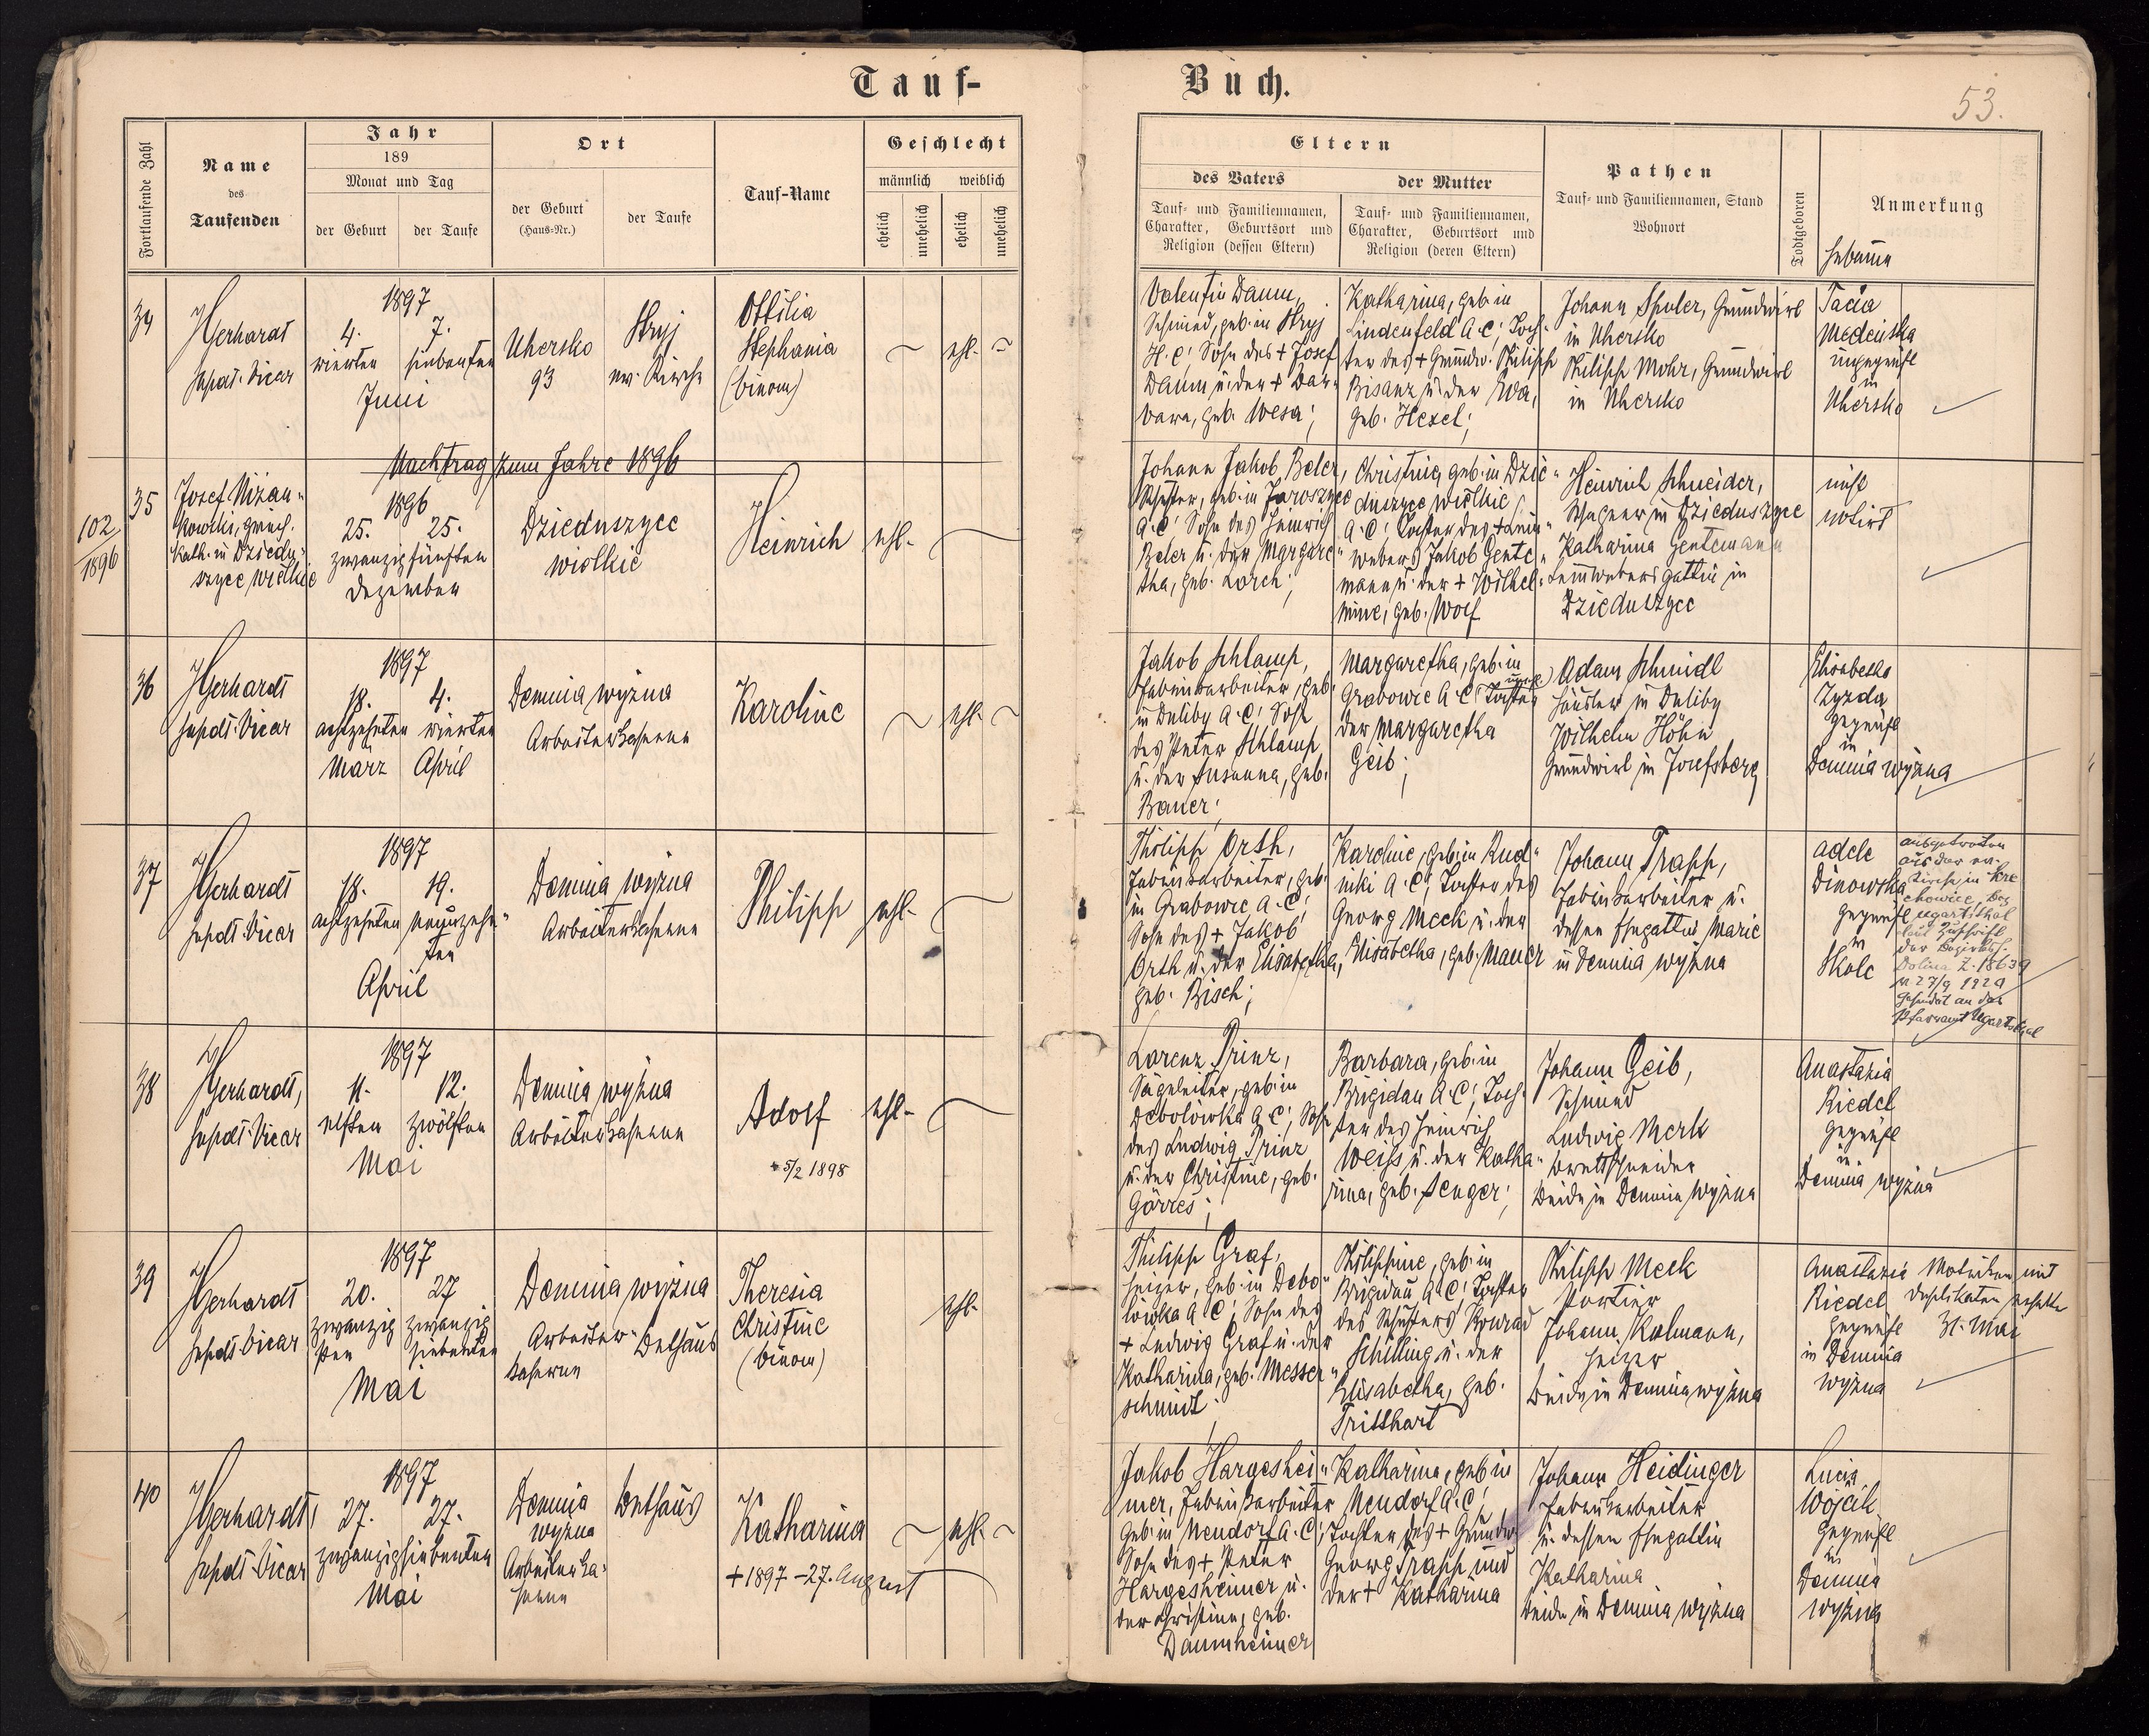 Tauf-
Buch.
53.
Fortlaufende Zahl
Name
des
Taufenden
Jahr
189
Monat und Tag
der Geburt
der Taufe
Ort
der Geburt
(Haus-Nr.)
der Taufe
Tauf-Name
Geschlecht
männlich
weiblich
ehelich
unehelich
ehelich
unehelich
Eltern
des Vaters
Tauf- und Familiennamen,
Charakter, Geburtsort und
Religion (dessen Eltern)
der Mutter
Tauf- und Familiennamen,
Charakter, Geburtsort und
Religion (deren Eltern)
Pathen
Tauf- und Familiennamen, Stand
Wohnort
Todtgeboren
Anmerkung
Hebamme
34
Gerhardt
Vicar
1897
4.
7.
vierten
siebenten
Juni
Uhersko
93
Stryj
ev. Kirche
Ottilia
Stephania
(binom)
ehl.
Valentin Daum,
Schmied, geb. in Stryj
H. C; Sohn des + Josef
Daum u. der + Bar-
bara, geb. Wesa;
Katharina, geb. in
Lindenfeld A. C; Toch-
ter des + Grundw. Philipp
Bisanz u. der Eva,
geb. Hexel;
Johann Spuler, Grundwirt
in Uhersko
Philipp Mohr, Grundwirt
in Uhersko
Tacia
Medeńska
ungeprüft
in
Uhersko
Nachtrag zum Jahre 1896
102/1896
35
Josef Nizan-
kowski, griech.
kath. in Dziedu-
szyce wielkie
1896
25.
25.
zwanzigfünften
Dezember
Dzieduszyce
wielkie
Heinrich
ehl.
Johann Jakob Beler,
Schuster, geb. in Jaroszyce
A. C; Sohn des Heinrich
Beler u. der Margare-
tha, geb. Lorch;
Christina, geb. in Dzie-
duszyce wielkie
A. C; Tochter des + Lein-
webers Jakob Gente-
mann u. der + Wilhel-
mine, geb. Wolf
Heinrich Schneider,
Wagner in Dzieduszyce
Katharina Gentemann
Leinwebersgattin in
Dzieduszyce
nicht
notirt
36
Gerhardt
Vicar
1897
18.
4.
achtzehnten
vierten
März
April
Demnia wyżna
Arbeiterkaserne
Karoline
ehl.
Jakob Schlamp,
Fabriksarbeiter, geb.
in Duliby A. C; Sohn
des Peter Schlamp
u. der Susanna, geb.
Bauer;
Margaretha, geb. in
Grabowce A. C; Tochter
der Margaretha
Geib;
Adam Schmidl
Häusler in Duliby
Wilhelm Höhn
Grundwirt in Josefsberg
Elisabetha
Zyzda
geprüft
in
Demnia wyżna
37
Gerhardt
Vicar
1897
18.
19.
achtzehnten
neunzehn-
ten
April
Demnia wyżna
Arbeiterkaserne
Philipp
ehl.
Philipp Orth,
Fabriksarbeiter, geb.
in Grabowce A. C;
Sohn des + Jakob
Orth u. der Elisabetha,
geb. Bisch;
Karoline, geb. in Rud-
niki A. C; Tochter des
Georg Meck u. der
Elisabetha, geb. Mauer
Johann Trapp,
Fabriksarbeiter u.
dessen Ehegattin Marie
in Demnia wyżna
Adele
Dinowska
geprüft
in
Skole
ausgetreten
aus der ev.
Kirche in Kre
chowice, Bez
Ugartsthal
laut Zuschrift
der Bezirksh.
Dolina Z. 18639
gesendet an das
Pfarramt Ugartsthal
38
Gerhardt,
Vicar
1897
11.
12.
elften
zwölften
Mai
Demnia wyżna
Arbeiterkaserne
Adolf
+ 5/2 1898
ehl.
Lorenz Prinz,
Sägeleiter, geb. in
Debolówka A. C; Sohn
des Ludwig Prinz
u. der Christine, geb.
Görres;
Barbara, geb. in
Brigidau A. C; Toch-
ter des Heinrich
Weiss u. der Katha-
rina, geb. Senger;
Johann Geib,
Schmied
Ludwig Merk
Brettschneider
beide in Demnia wyżna
Anastazia
Riedel
geprüft
in
Demnia wyżna
39
Gerhardt
Vicar
1897
20.
27
zwanzig
sten
zwanzig
siebenten
Mai
Demnia wyżna
Arbeiter-
kaserne
Bethaus
Theresia
Christine
(binom)
ehl.
Philipp Graf,
Heizer, geb. in Debo-
lówka A. C; Sohn des
+ Ludwig Graf u. der
Katharina, geb. Messer-
schmidt;
Philippine, geb. in
Brigidau A. C; Tochter
des Schusters Konrad
Schilling u. der
Elisabetha, geb.
Tritthart
Philipp Meck
Portier
Johann Kolmann,
Heizer
beide in Demnia wyżna
Anastazia
Riedel
geprüft
in Demnia
wyżna
Matriken mit
Duplikaten
31. Mai
40
Gerhardt,
Vicar
1897
27.
27.
zwanzigsiebenten
Mai
Demnia
wyżna
Arbeiterka-
serne
Bethaus
Katharina
+ 1897 - 27. August
ehl.
Jakob Hargeshei-
mer, Fabriksarbeiter
geb. in Neudorf A. C;
Sohn des + Peter
Hargesheimer u.
der Christine, geb.
Daumheimer
Katharina, geb. in
Neudorf A. C;
Tochter des + Grundw.
Georg Trapp und
der + Katharina
Johann Heidinger
Fabriksarbeiter
u. dessen Ehegattin
Katharina
beide in Demnia wyżna
Lucia
Wójcik
geprüft
in
Demnia
wyżna